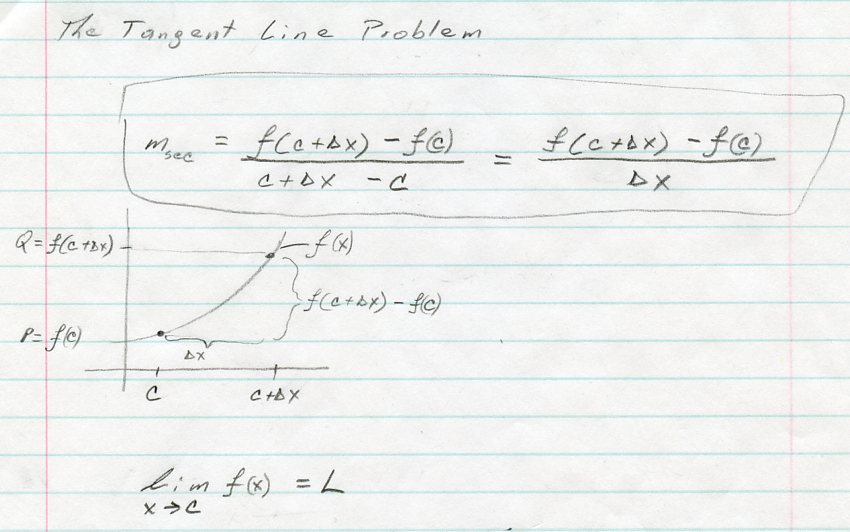 The Tangent Line Problem
m_sec = f(c+Δx) - f(c) / c+Δx - c = f(c+Δx) - f(c) / Δx
Q = f(c+Δx)
f(x)
f(c+Δx) - f(c)
P = f(c)
Δx
c
c+Δx
lim f(x) = L
x→c